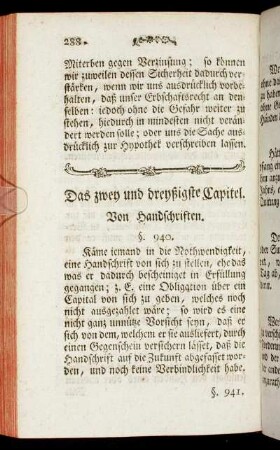 288.
Miterben gegen Verzinsung; so können
wir zuweilen dessen Sicherheit dadurch ver-
stärken, wenn wir uns ausdrücklich vorbe-
halten, daß unser Erbschaftsrecht an den-
selben: jedoch ohne die Gefahr weiter zu
stehen, hiedurch in mindesten nicht verän-
dert werden solle; oder uns die Sache aus-
drücklich zur Hypothek verschreiben lassen.
Das zwey und dreyßigste Capitel.
Von Handschriften.
§. 940.
Käme iemand in die Nothwendigkeit,
eine Handschrift von sich zu stellen, ehe das
was er dadurch bescheiniget in Erfüllung
gegangen; z. E. eine Obligation über ein
Capital von sich zu geben, welches noch
nicht ausgezahlet wäre; so wird es eine
nicht ganz unnütze Vorsicht seyn, daß er
sich von dem, welchem er sie ausliefert, durch
einen Gegenschein versichern lässet, daß die
Handschrift auf die Zukunft abgefasset wor-
den, und noch keine Verbindlichkeit habe.
§. 941.